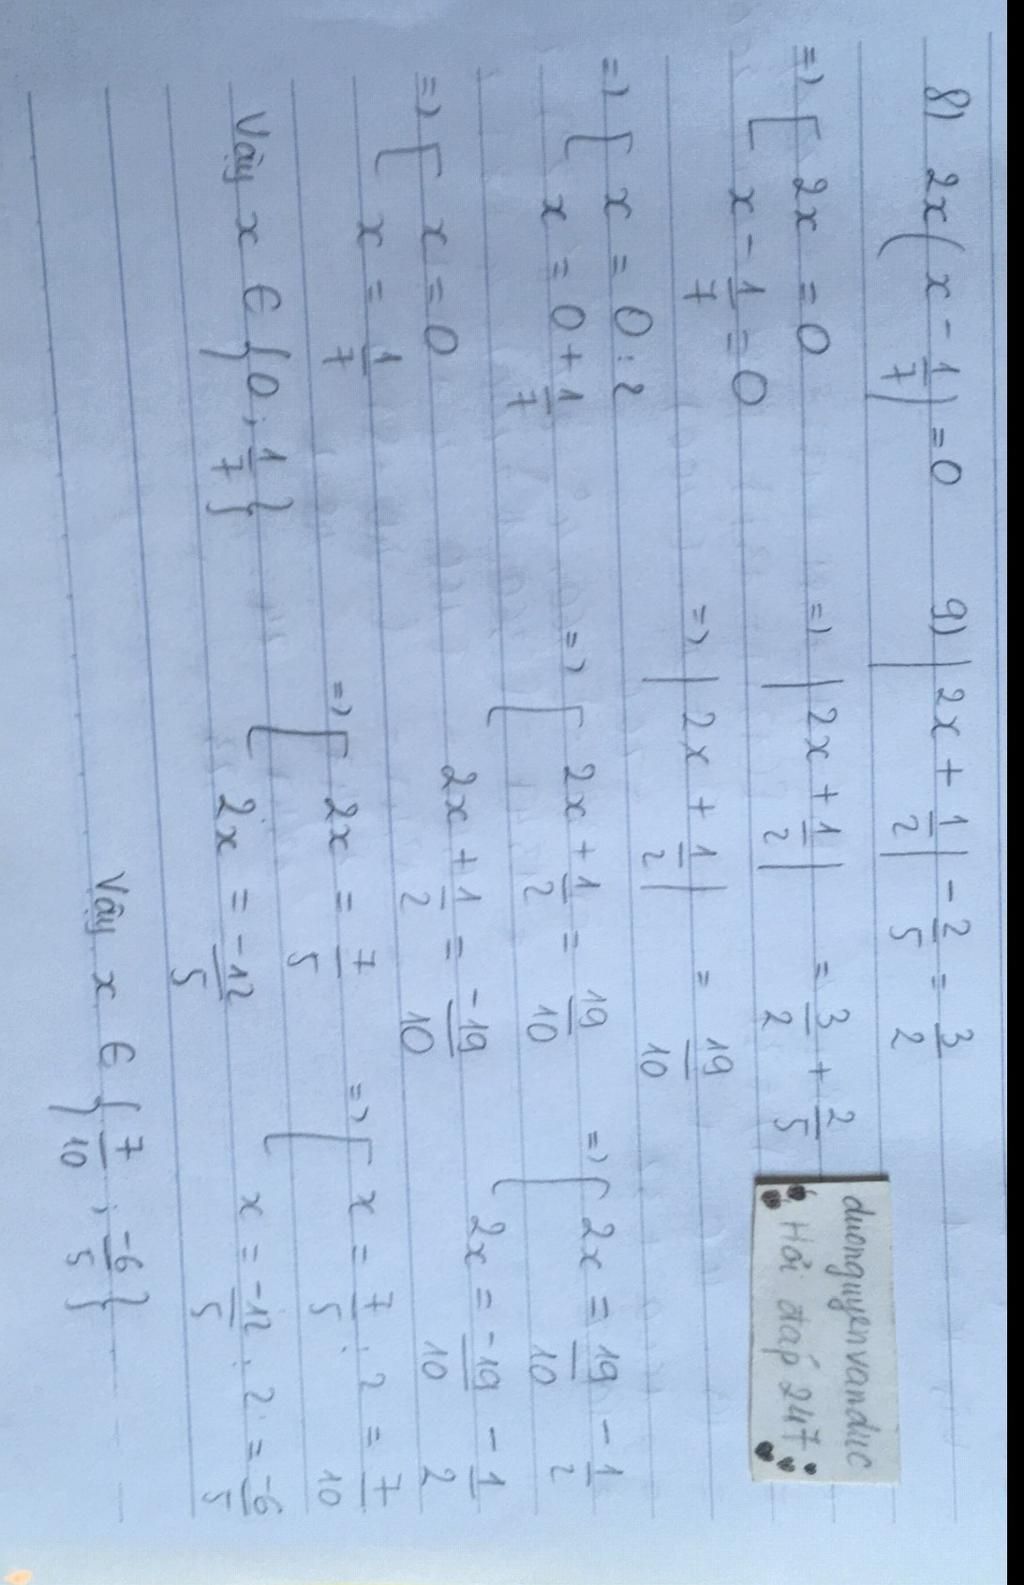 8) 2x(x - 1/7) = 0
=> [ 2x = 0
x - 1/7 = 0
=> [ x = 0 : 2
x = 0 + 1/7
=> [ x = 0
x = 1/7
Vậy x ∈ {0 ; 1/7}
9) |2x + 1/2| - 2/5 = 3/2
=> |2x + 1/2| = 3/2 + 2/5
=> |2x + 1/2| = 19/10
=> [ 2x + 1/2 = 19/10
2x + 1/2 = -19/10
=> [ 2x = 19/10 - 1/2
2x = -19/10 - 1/2
=> [ 2x = 7/5
2x = -12/5
=> [ x = 7/5 : 2 = 7/10
x = -12/5 : 2 = -6/5
Vậy x ∈ {7/10 ; -6/5}
duonguyenvanduc
Hỏi đáp 247